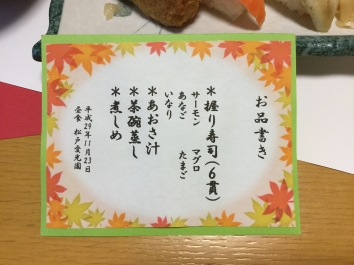 お品書き
＊握り寿司(6貫)
サーモン　マグロ
あなご　たまご
いなり
＊あおさ汁
＊茶碗蒸し
＊煮しめ
平成29年11月23日
昼食　松戸愛光園